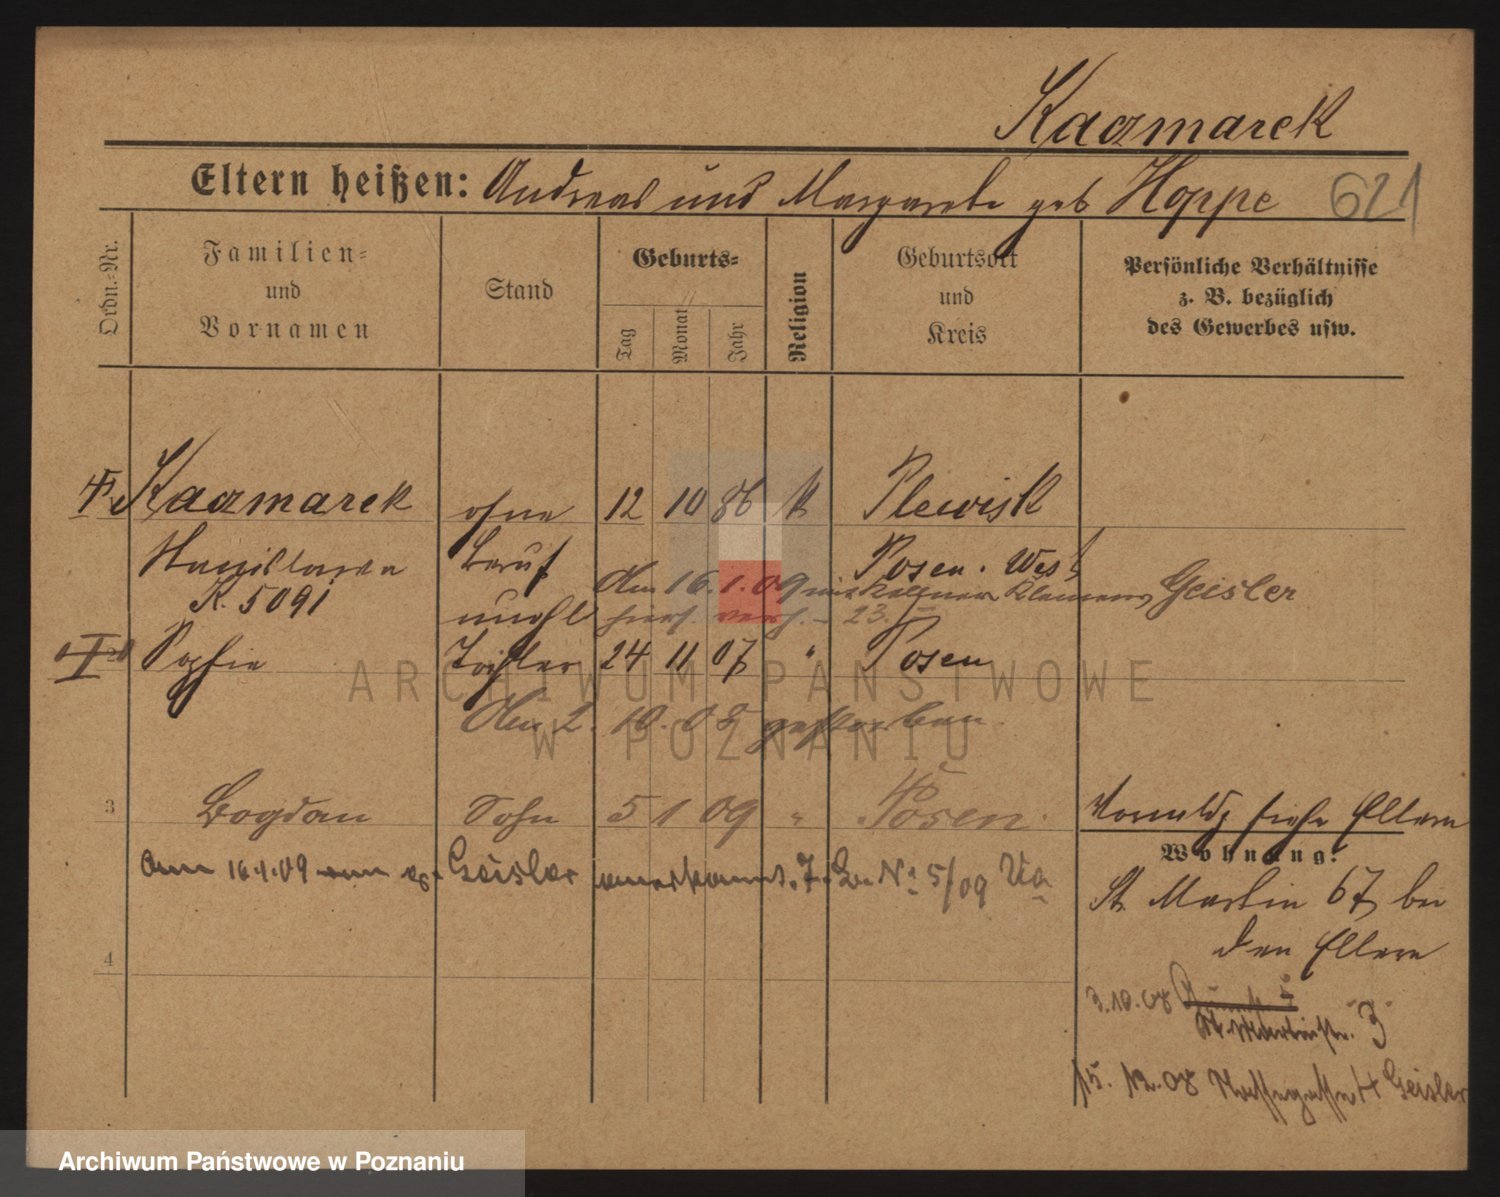 Kaczmarek
Eltern heißen: Andreas und Margarete geb Hoppe 621
Ordn.-Nr.
Familien-
und
Vornamen
Stand
Geburts-
Tag
Monat
Jahr
Religion
Geburtsort
und
Kreis
Persönliche Verhältnisse
z. B. bezüglich
des Gewerbes usw.
Kaczmarek ohne 12 10 86 k Plewisk
Stanislawa Beruf Posen. West
K. 5091
unehl den 16.1.09 Geisler
hier 23.
Sophie Tochter 24 11 07 " Posen
den 2. 10. 08 gestorben
3 Bogdan Sohn 5 1 09 " Posen
am 16.1.09 Geisler anerkannt. No 5/09
siehe Eltern
Wohnung:
St Martin 67 bei
den Eltern
4
3.10.08
St. Martinstr. 3
15. 12.08 Geisler
ARCHIWUM PAŃSTWOWE
W POZNANIU
Archiwum Państwowe w Poznaniu